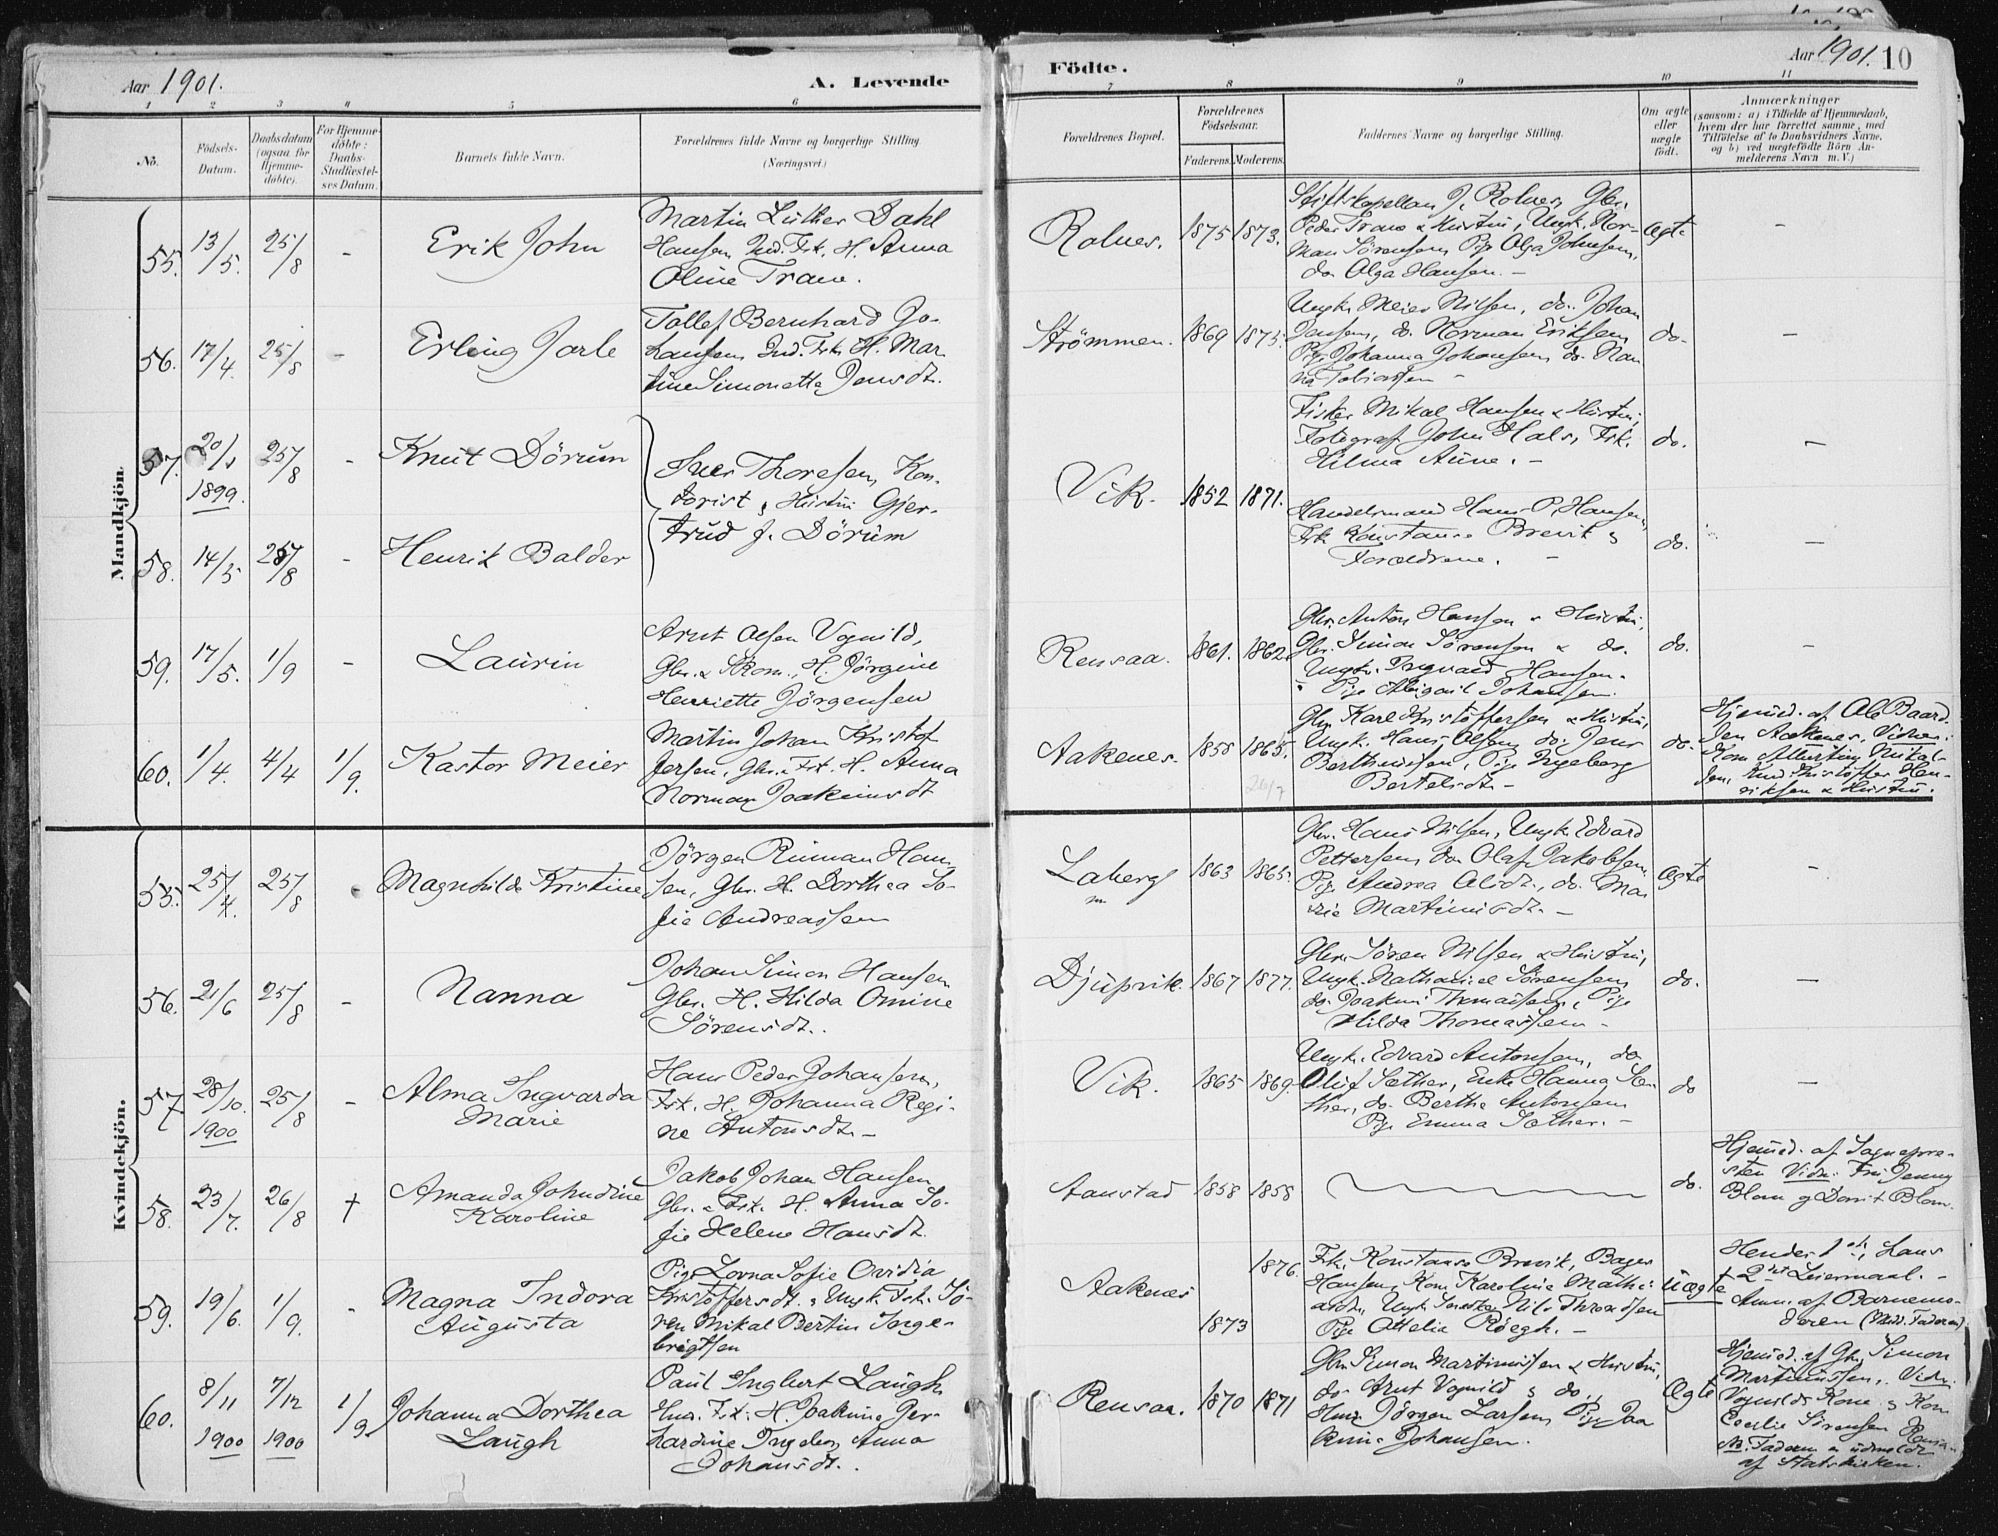 Aar 1901.
A. Levende
Födte.
Aar 1901. 10
1 2 3 4 5 6
7 8 9 10 11
No.
Födsels-
Datum.
Daabsdatum
(ogsaa for
Hjemme-
döbte).
For Hjemme-
döbte:
Daabs-
Stadfæstel-
ses Datum.
Barnets fulde Navn.
Forældrenes fulde Navne og borgerlige Stilling
(Næringsvei)
Forældrenes Bopæl.
Forældrenes
Födselsaar.
Faderens. Moderens.
Faddernes Navne og borgerlige Stilling.
Om ægte
eller
uægte
födt.
Anmærkninger
(saasom: a) i Tilfælde af Hjemmedaab,
hvem der har forrettet samme, med
Tilföielse af to Daabsvidners Navne,
og b) ved uægtefödte Börn An-
melderens Navn m. V.)
Mandkjön.
55. 13/5. 25/8 - Erik John
Martin Luther Dahl
Hansen, Ind. Fsk. H. Anna
Oline Trane.
Rolnes. 1875 1873.
Stiftskapellan J. Rolnes, Gbr.
Peder Trane & Hustru, Ungk. Nor-
man Sörensen, Pige Olga Johnsen,
do Olga Hansen. -
Ægte -
56. 17/4. 25/8 - Erling Jarle
Tollef Bernhard Jo-
hansen, Ind. Fsk. H. Mar-
tine Simonette Jensdt.
Strömmen. 1869 1875.
Ungk. Meier Nilsen, do. Johan
Jensen, do. Norman Eriksen
Pige Johanna Johansen, do. Nan-
na Tobiassen -
do. -
57. 20/1 1899. 25/8 - Knut Dörum
58. 14/5 25/8 - Henrik Balder
Iver Thoresen, Kon-
torist & Hustru Gjer-
trud f. Dörum
Vik. 1852 1871.
Fisker Mikal Hansen & Hustru,
Fotograf John Hals, Frk.
Hilma Aune. -
do. -
Handelsmand Hans P. Hansen,
Frk Konstanse Brevik &
Forældrene. -
do. -
59. 17/5. 1/9 - Laurin
Arnt Olsen Vognild,
Gbr. & Skom., H. Jörgine
Henriette Jörgensen
Rensaa. 1861. 1862.
Gbr. Anton Hansen & Hustru,
Gbr. Simon Sörensen & do.
Ungk. Ingvard Hansen.
Pige Abigail Johansen.
do. -
60. 1/4. 4/4 1/9. Kastor Meier
Martin Johan Kristof-
fersen, Gbr. & Fsk. H. Anna
Norman Joakimsdt
Aakenes. 1858 1865.
Gbr. Karl Kristoffersen & Hustru,
Ungk. Hans Olsen, do. Jens
Berthinsen, Pige Ingeborg
Bertelsdt. -
do.
Hjemmed. af Ole Baard-
sen Aakenes, Vidner:
Kone Albertine Mikal-
sen, Kristoffer Hen-
riksen & Hustru.
Kvindekjön.
55. 25/4. 25/8 - Magnhilda Kristine
Jörgen Rinman Han-
sen, Gbr. H. Dorthea So-
fie Andreassen
Laberg 1863 1865.
Gbr. Hans Nilsen, Ungk Edvard
Pettersen, do Olaf Jakobsen
Pige Andrea Olsdt., do. Ma-
rie Martinusdt. -
Ægte -
56. 21/6 25/8 - Nanna
Johan Simon Hansen
Gbr. H. Hilda Omine
Sörensdt.
Djupvik. 1867 1877.
Gbr. Sören Nilsen & Hustru,
Ungk. Nathaniel Sörensen
do. Joakim Thomassen, Pige
Hilda Thomassen -
do. -
57. 28/10. 1900 25/8 - Alma Ingvarda
Marie
Hans Peder Johansen,
Fsk. H. Johanna Regi-
ne Antonsdt. -
Vik. 1865 1869.
Ungk. Edvard Antonsen, do
Oluf Sæther, Enke Hanna Sæ-
ther, do. Berthe Antonsen
Pige Emma Sæther. -
do -
58. 23/7. 26/8 † Amanda Johndine
Karoline
Jakob Johan Hansen
Gbr. & Fsk. H. Anna So-
fie Helene Hansdt.
Aanstad 1858 1858
do.
Hjemmed. af Sognepre-
sten Vidn: Fru Jenny
Blom og Dorit Blom.
59. 19/6. 1/9. - Magna Indora
Augusta
Pige Lorna Sofie Ovidia
Kristoffersdt. & Ungk. Fsk. Sö-
ren Mikal Bertin Inge-
brigtsen
Aakenes 1876.
1873
Frk. Konstanse Brevik, Bager
Hansen, Kone Karoline Mathi-
asdt., Ungk. Nils Throndsen
Pige Ottelia Röegh. -
Uægte
Hendes 1ste, hans
2det Leiermaal. -
Anm. af Barnemo-
deren
60. 8/11 1900 7/12 1900 1/9 Johanna Dorthea
Laugh
Paul Ingbert Laugh,
Hmd. Fsk. H. Joakime Ger-
hardine Ingebor Anna
Johansdt.
Rensaa. 1870 1871
Gbr. Simon Martinussen & Hustru,
do Arnt Vognild & do.
Hmd Jörgen Larsen, Pige Joa-
kime Johansen.
Ægte
Hjemmed. af Gbr. Simon
Martinussen. Vidn:
Vognilds Kone & Kone
Cecilie Sörensen Rensaa
NB. Faderen er udmeldt
af Statskirken.